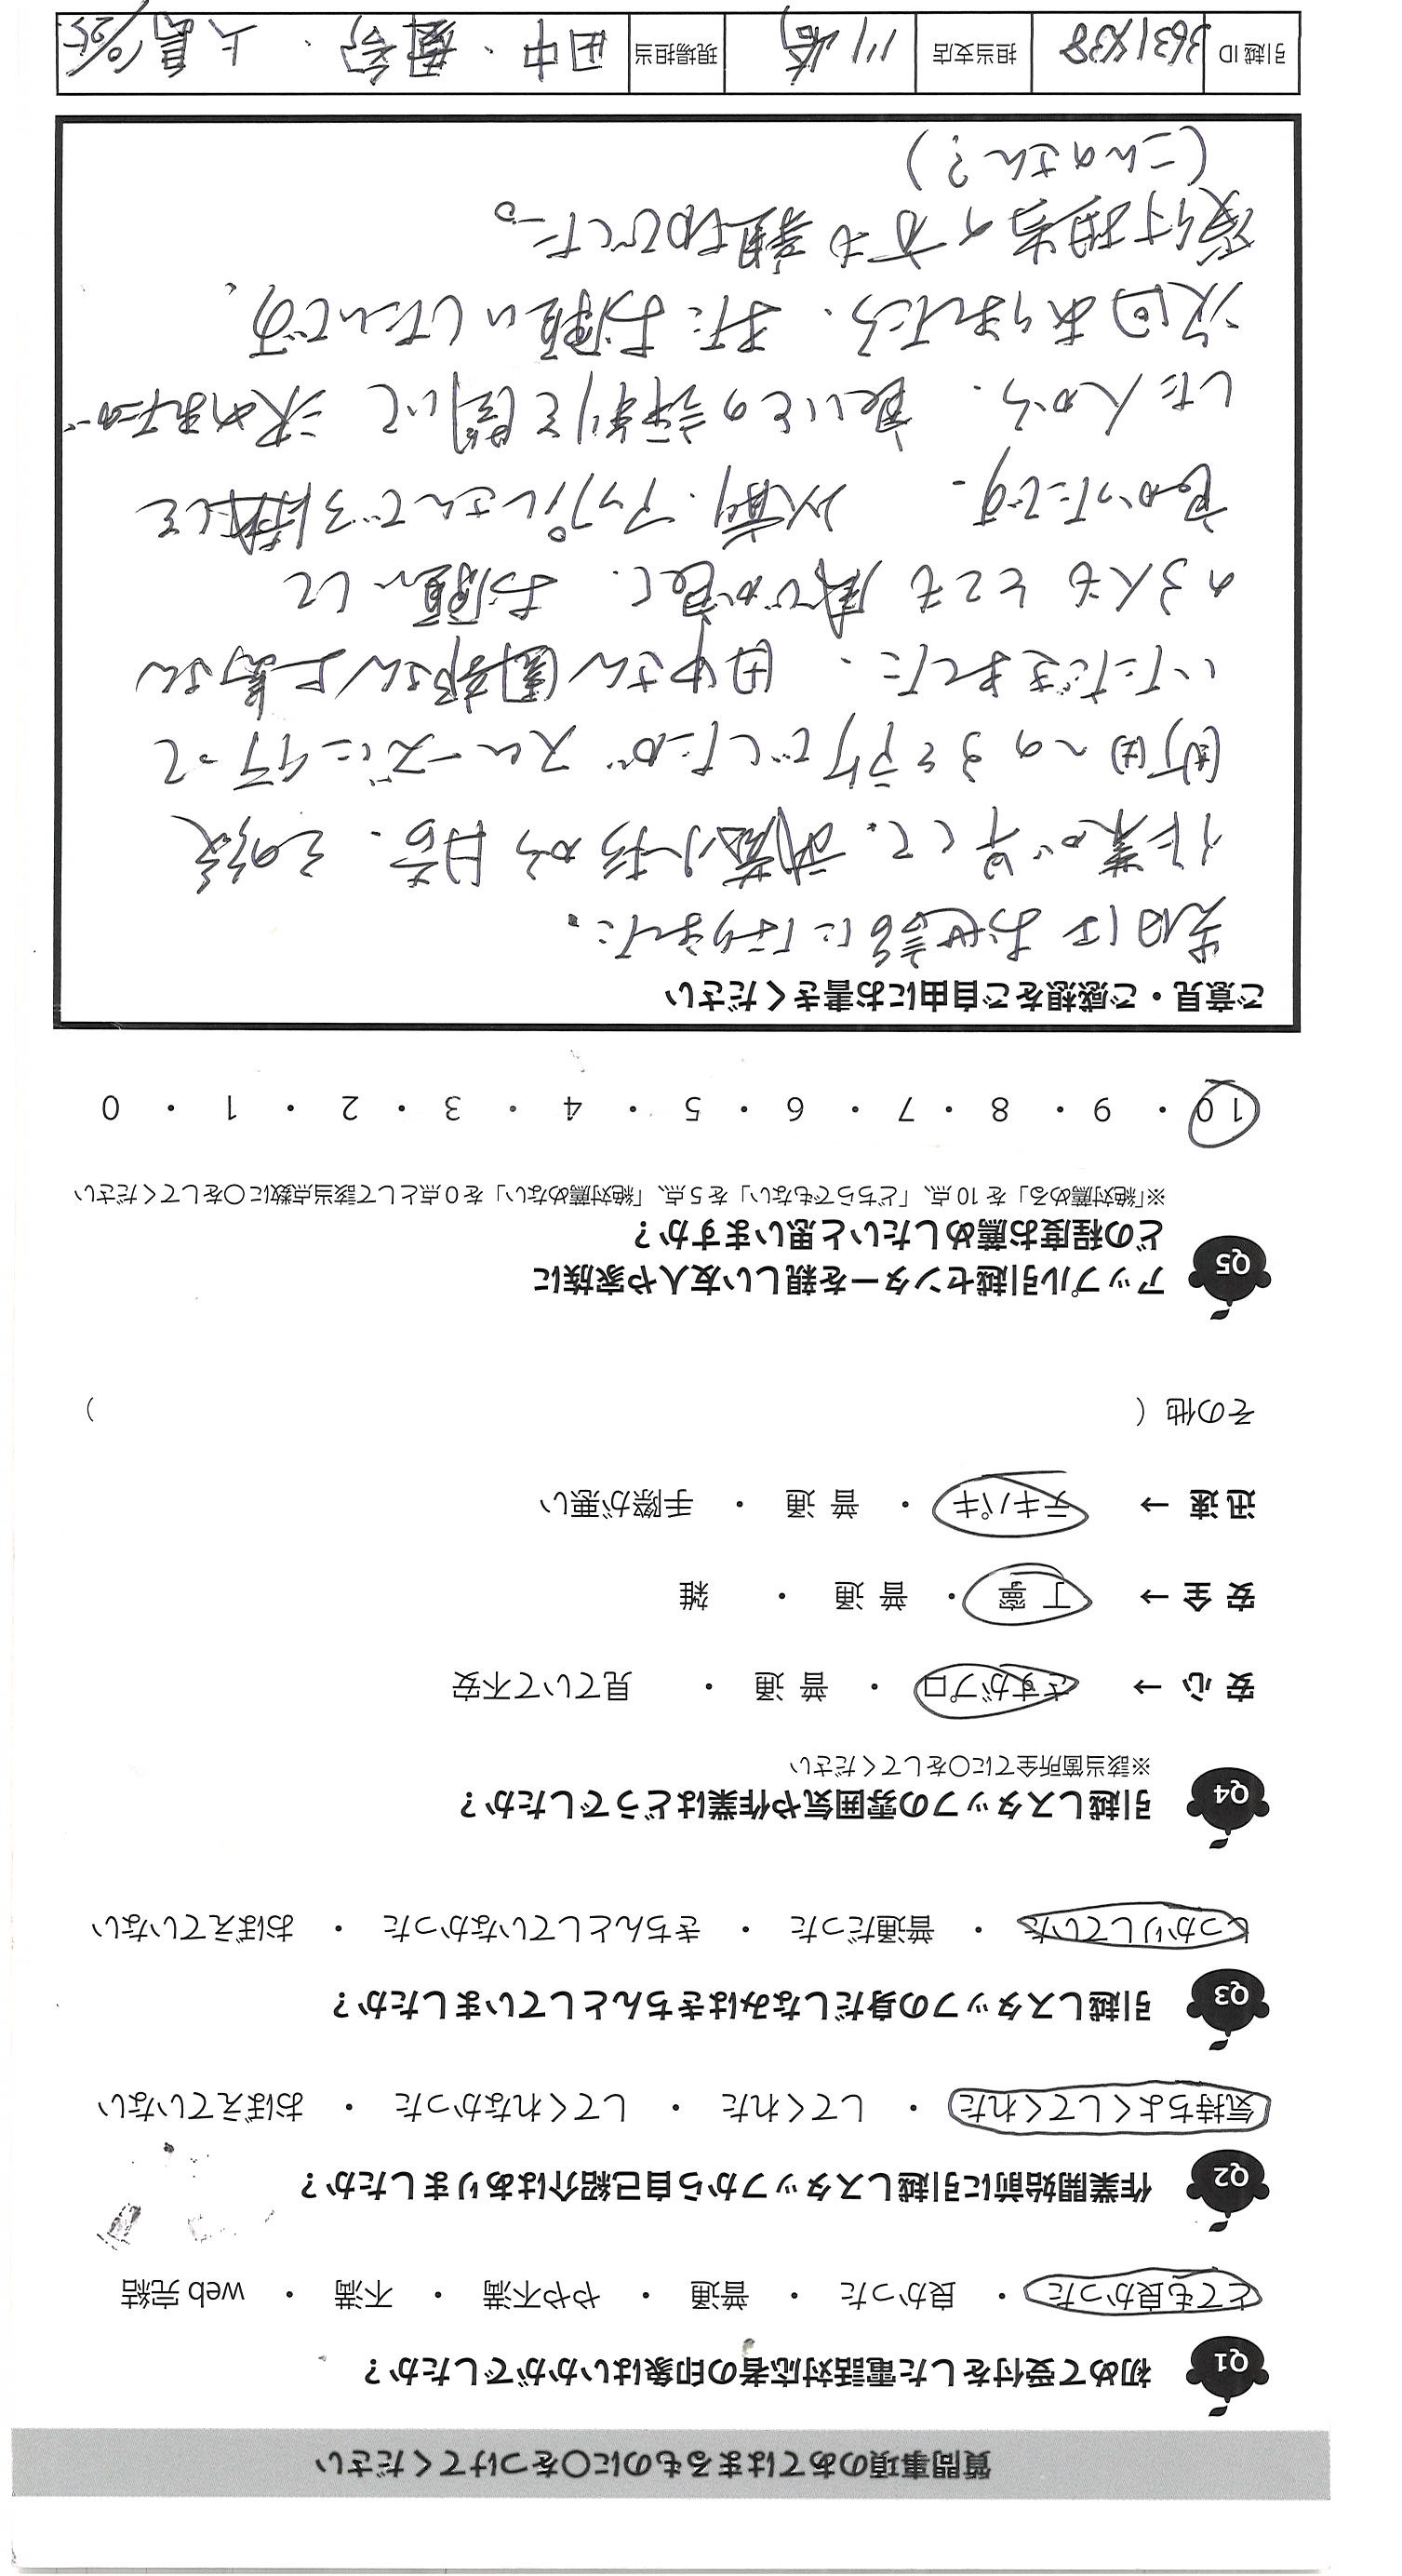 質問事項のあてはまるものに〇をつけてください
Q1 初めて受付をした電話対応者の印象はいかがでしたか？
とても良かった ・ 良かった ・ 普通 ・ やや不満 ・ 不満 ・ web 完結
Q2 作業開始前に引越しスタッフから自己紹介はありましたか？
気持ちよくしてくれた ・ してくれた ・ してくれなかった ・ おぼえていない
Q3 引越しスタッフの身だしなみはきちんとしていましたか？
しっかりしていた ・ 普通だった ・ きちんとしていなかった ・ おぼえていない
Q4 引越しスタッフの雰囲気や作業はどうでしたか？
※該当箇所全てに〇をしてください
安心 → さすがプロ ・ 普通 ・ 見ていて不安
安全 → 丁寧 ・ 普通 ・ 雑
迅速 → テキパキ ・ 普通 ・ 手際が悪い
その他（ ）
Q5 アップル引越センターを親しい友人や家族に
どの程度お薦めしたいと思いますか？
※「絶対薦める」を 10 点、「どちらでもない」を 5 点、「絶対薦めない」を 0 点として該当点数に〇をしてください
10 ・ 9 ・ 8 ・ 7 ・ 6 ・ 5 ・ 4 ・ 3 ・ 2 ・ 1 ・ 0
ご意見・ご感想をご自由にお書きください
先日はお世話になりました。
作業が早くて、武蔵小杉から目黒、その後
町田へのうち予定でしたがスムーズに行って
いただきました。 田中さん園部さん上島さん
の3人もとても感じが良く、お願いして
良かったです。 以前、アップルさんで引越しを
した人から、良いとの評判を聞いて決めましたが
次回ありましたら、またお願いしたいです。
受付担当の方も親切でした。
（こんのさん？）
引越 ID 担当支店 川崎 現場担当 田中・園部・上島 10/25